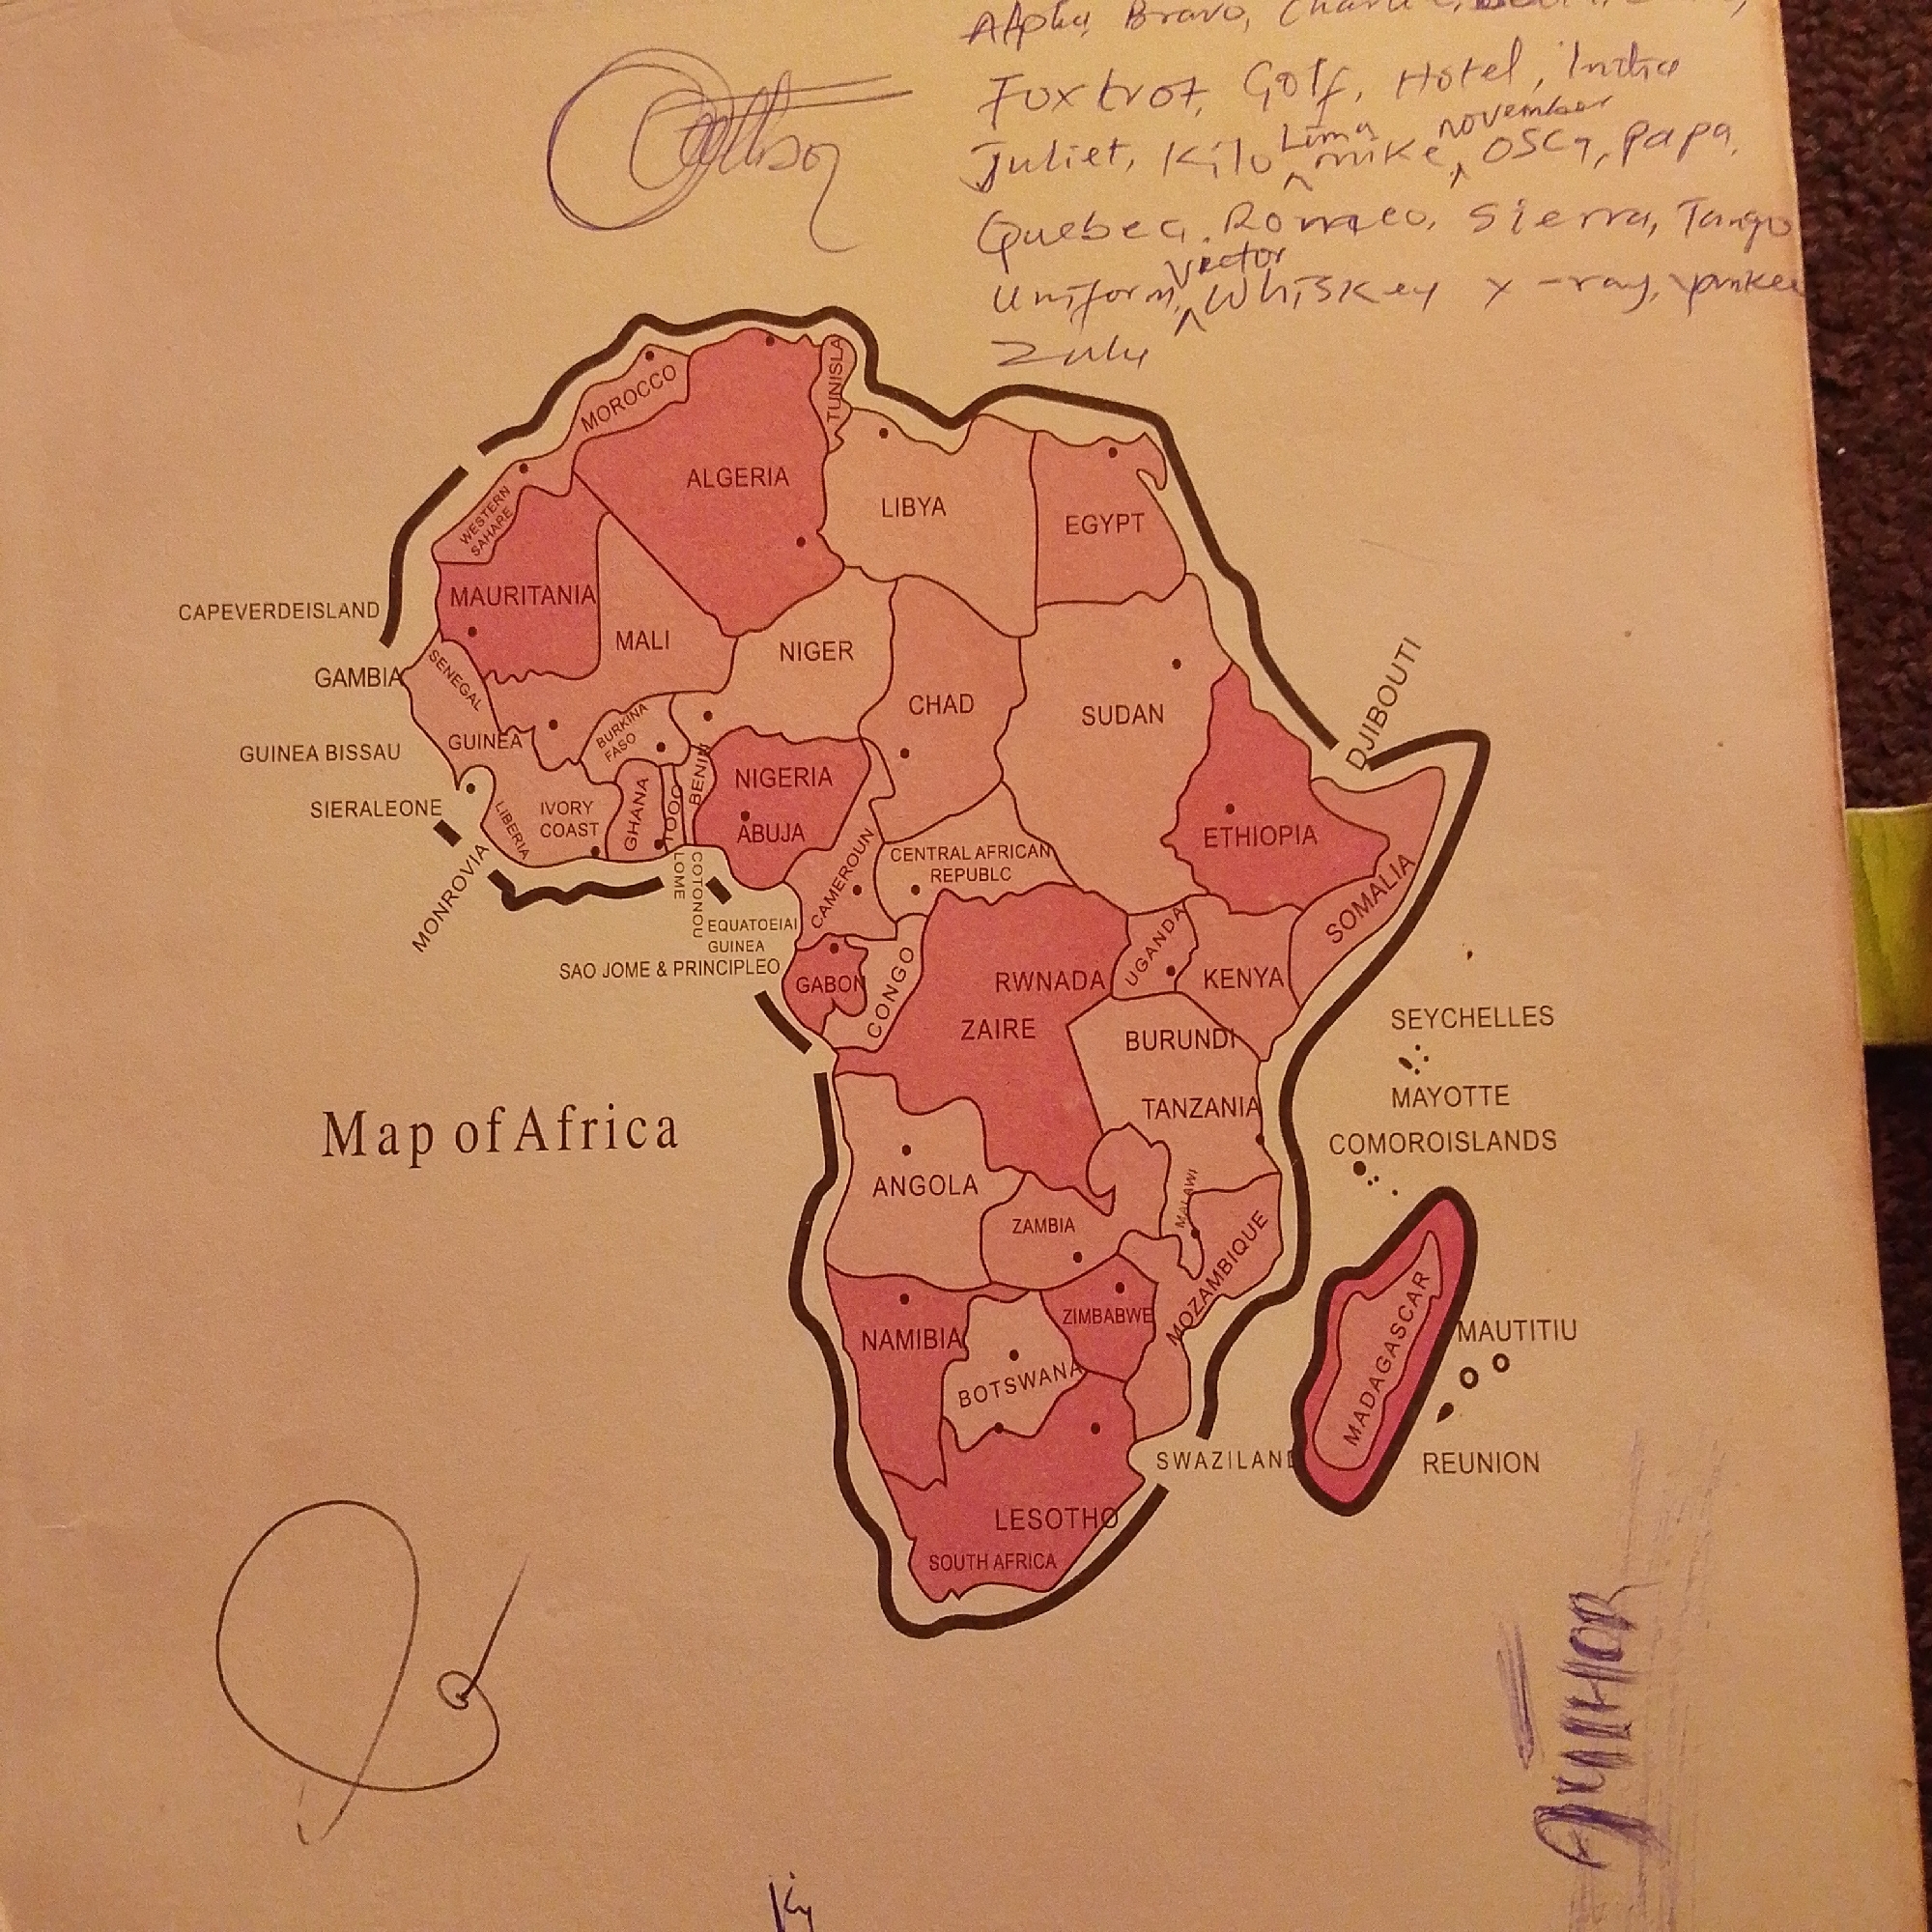 Alpha, Bravo, Charlie,
Foxtrot, Golf, Hotel, India
Juliet, Kilo Lima mike, november OSCA, papa,
Quebec, Romeo, Sierra, Tango
Uniform, Vector Whiskey x-ray, yankee
Zulu
MOROCCO
TUNISLA
ALGERIA
LIBYA
EGYPT
WESTERN
SAHARE
MAURITANIA
CAPEVERDEISLAND
MALI
NIGER
GAMBIA
SENEGAL
CHAD
SUDAN
DJIBOUTI
GUINEA BISSAU
GUINEA
BURKINA
FASO
BENIN
NIGERIA
ABUJA
SIERALEONE
LIBERIA
IVORY
COAST
GHANA
TOGO
ETHIOPIA
MONROVIA
LOME
COTONOU
CAMEROUN
CENTRAL AFRICAN
REPUBLC
SOMALIA
EQUATOEIAI
GUINEA
SAO JOME & PRINCIPLEO
GABON
CONGO
RWNADA
UGANDA
KENYA
ZAIRE
BURUNDI
SEYCHELLES
MAYOTTE
TANZANIA
COMOROISLANDS
Map of Africa
ANGOLA
ZAMBIA
MALAWI
MOZAMBIQUE
NAMIBIA
ZIMBABWE
BOTSWANA
MADAGASCAR
MAUTITIU
SWAZILAND
REUNION
LESOTHO
SOUTH AFRICA